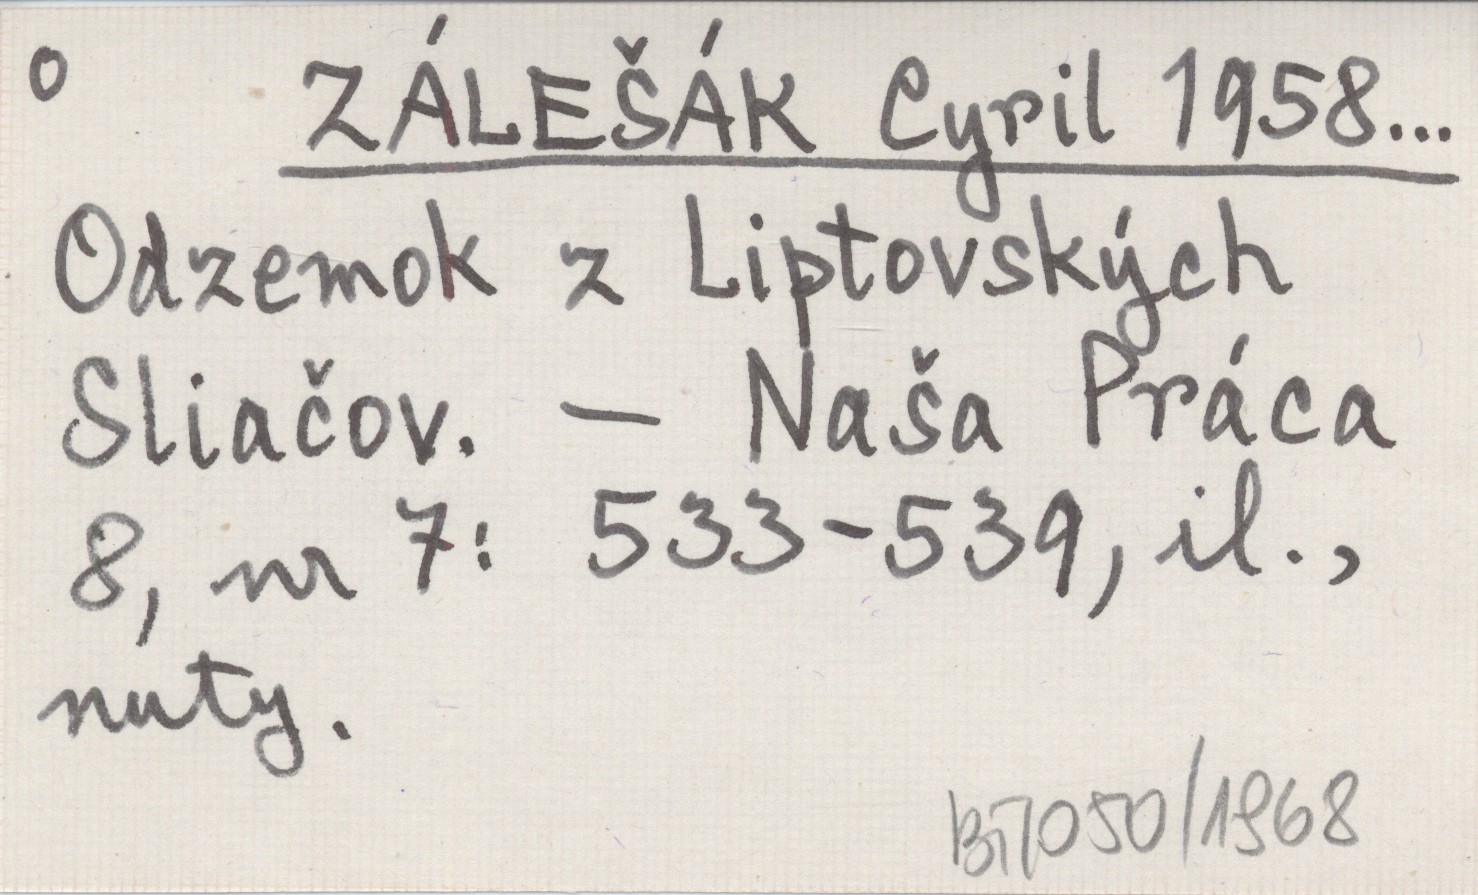 o ZÁLEŠÁK Cyril 1958...
Odzemok z Liptovských
Sliačov. – Naša Práca
8, nr 7: 533-539, il.,
nuty.
Bi7050/1968